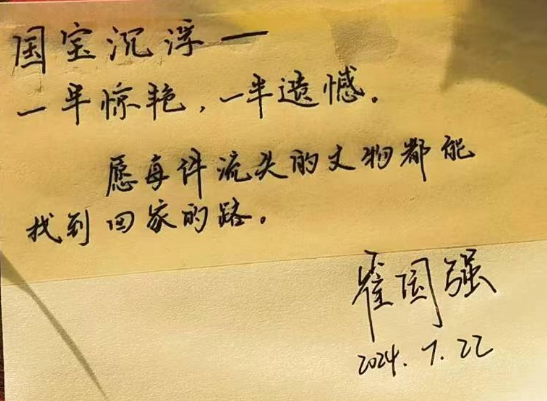 国宝沉浮一
一半惊艳，一半遗憾。
愿每件流失的文物都能
找到回家的路。
霍国强
2024.7.22